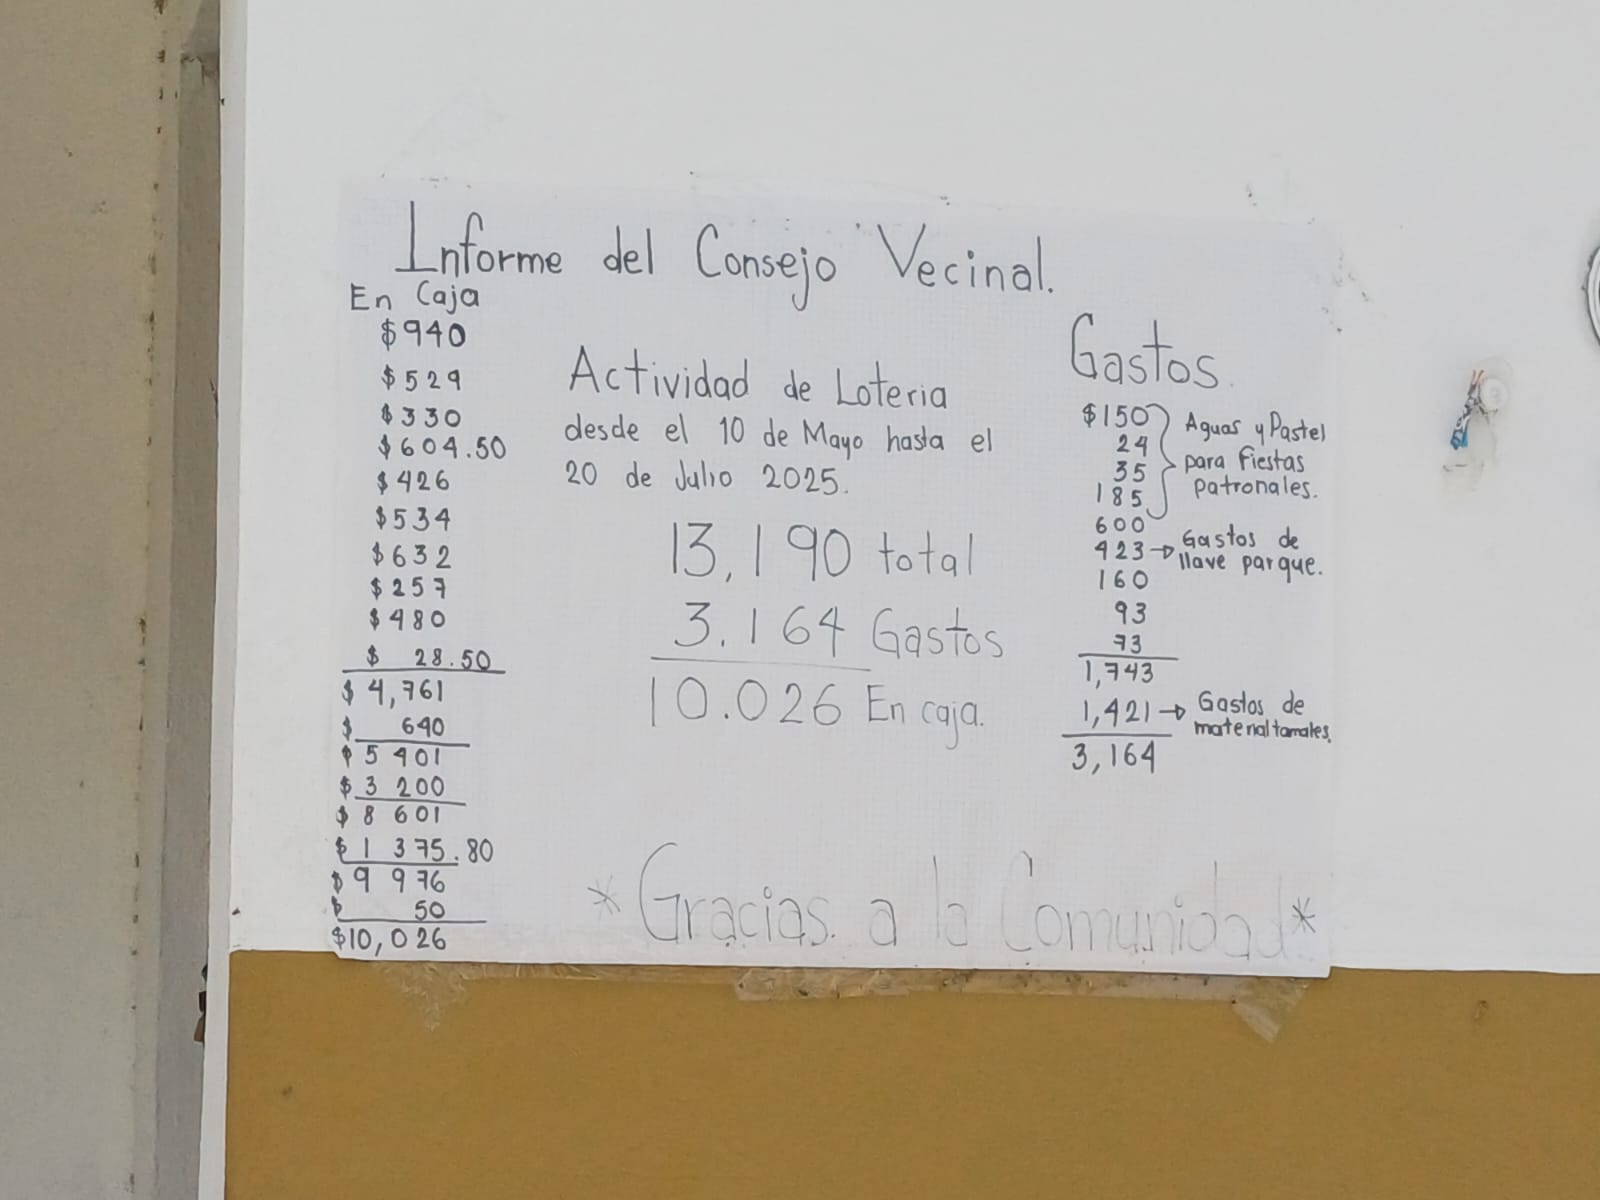 Informe del Consejo Vecinal.
En Caja
$940
$529
$330
$604.50
$426
$534
$632
$257
$480
$ 28.50
$ 4,761
$ 640
$ 5 401
$ 3 200
$ 8 601
$ 1 375.80
$ 9 976
$ 50
$10,026
Actividad de Loteria
desde el 10 de Mayo hasta el
20 de Julio 2025.
13,190 total
3.164 Gastos
10.026 En caja.
Gastos.
$150
24
35
185
Aguas y Pastel
para Fiestas
patronales.
600
423 → Gastos de
llave parque.
160
93
73
1,743
1,421 → Gastos de
material tamales.
3,164
* Gracias. a la Comunidad *